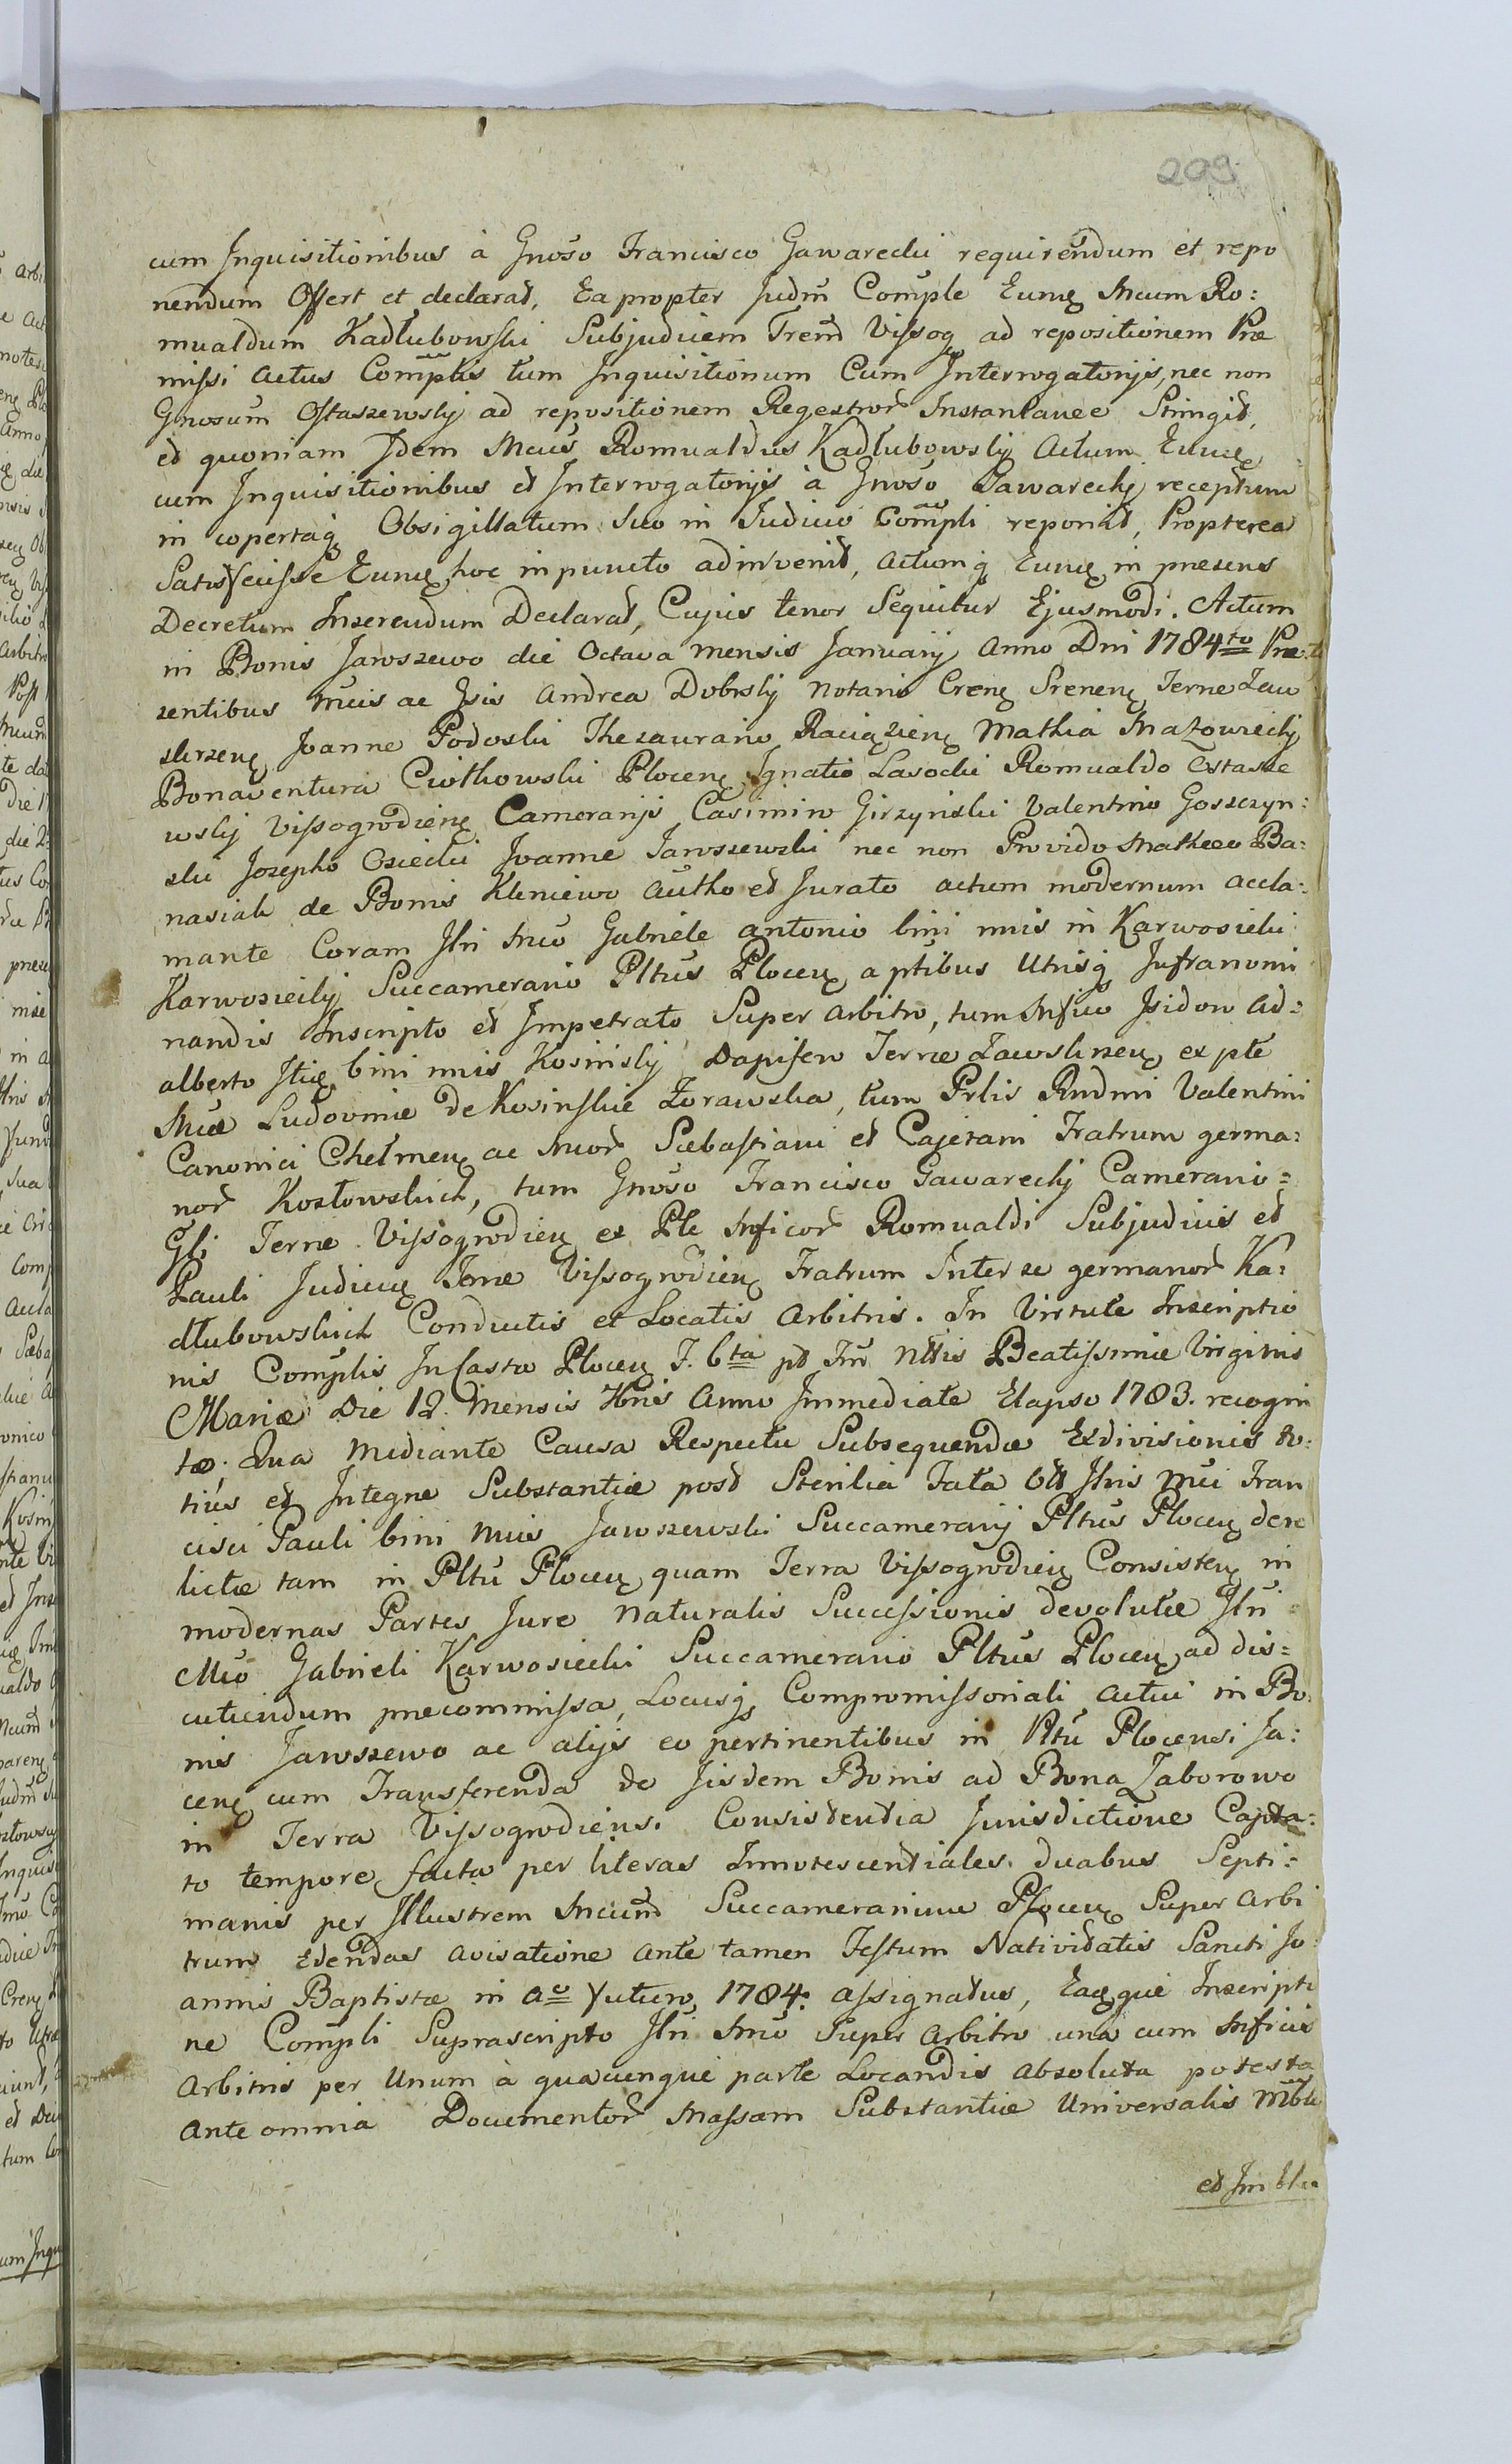 209
cum Inquisitionibus à Gnoso Francisco Gawarecki requirendum et repo
nendum Offert et declarat, Ea propter Judm Comple Eunq Mcum Ro:
mualdum Kadłubowski Subjudicem Trem Vissog ad repositionem Præ
missi actus Complis tum Inquisitionum Cum Interrogatorijs, nec non
Gnosum Ostaszewskij ad repositionem Regestror Instantanee Stringit,
et quoniam Idem Mcus Romualdus Kadłubowskij Actum Eunq
cum Inquisitionibus et Interrogatorijs à Gnoso Gawareckij receptum
in copertaq Obsigillatum Suo in Judicio Compli reponit, Propterea
Satisfecisse Eunq hoc in puncto adinvenit, actumq Eunq in præsens
Decretum Inserendum Declarat, Cujus tenor Sequitur Ejusmodi. Actum
in Bonis Jaroszewo die Octava mensis Januarij Anno Dni 1784to Præ
sentibus Mcis ac Gsis Andrea Dobrskij Notario Crenq Srenenq Terræ Zaw
skrzenq Joanne Podoski Thesaurario Raciązienq Mathia Mazowieckij
Bonaventura Ciotkowski Plocenq Ignatio Lasocki Romualdo Ostasze
wskij Vissogrodienq Cameranjs Casimiro Girzyński Valentino Goszczyn:
ski Josepho Osiecki Joanne Jaroszewski nec non Provido Matheo Ba:
nasiak de Bonis Kleniewo Autho et Jurato actum modernum accla:
mante Coram Illri Mco Gabriele Antonio bini mis in Karwosieki
Karwosieckij Succamerario Pltus Plocenq a ptibus Utrisq Infranomi
nandis Inscripto et Impetrato Super arbitro, tum Mfico Isidoro Ad:
alberto Itiq bini mis Kosinskij Dapifero Terræ Zawskrzenq ex pte
Mcæ Ludovicæ de Kosinskie Żorawska, tum Prlis Rndmi Valentini
Canonici Chelmenq ac Mcor Sæbastiani et Cajetani Fratrum germa:
nor Kozłowskich, tum Gnoso Francisco Gawareckij Camerario=
Gli Terræ Vissogrodienq ex Pte Mficor Romualdi Subjudicis et
Pauli Judicis Terræ Vissogrodienq Fratrum Inter se germanor Ka:
dłubowskich Conductis et Locatis Arbitris. In Virtute Inscriptio
nis Complis In Castro Plocenq F. 6ta pt Fm Nttis Beatissimæ Virginis
Mariæ Die 12 Mensis Xbris Anno Immediate Elapso 1783. recogni
tæ; Qua mediante Causa Respectu Subsequendæ Exdivisionis to:
tius et Integræ Substantiæ post Sterilia Fata Ott Illris Mci Fran
cisci Pauli bini Mis Jaroszewski Succamerarij Pltus Plocenq dere
lictæ tam in Pltu Plocenq quam Terra Vissogrodienq Consistenq in
modernas Partes Jure Naturalis Successionis devolutæ Illri
Mco Gabrieli Karwosiecki Succamerario Pltus Plocenq ad dis=
cutiendum præcommissa, Locusq Compromissoriali Actui in Bo:
nis Jaroszewo ac alijs eo pertinentibus in Pltu Plocensi Ja:
cenq cum Transferenda de Iisdem Bonis ad Bona Zaborowo
in Terra Vissogrodiensi Consistentia Jurisdictione Capta:
to tempore facta per literas Innotescentiales duabus Septi:
manis per Illustrem Mcum Succamerarium Plocenq Super Arbi
trum Edendas avisatione ante tamen Festum Nativitatis Sancti Jo
annis Baptistæ in Ao futuro 1784. assignatus, Eaqque Inscriptio
ne Compli Suprascripto Illri Mco Super Arbitro una cum Mficis
Arbitris per Unum à quacunque parte Locandis Absoluta potesta
Ante omnia Documentor Massam Substantiæ Universalis Mblu
et Imblu